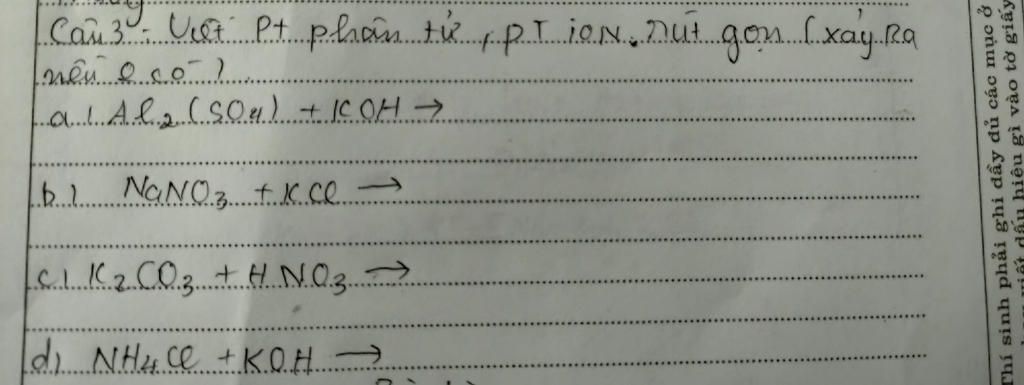 Câu 3: Viết Pt phân tử, pT ioN rút gọn (xảy Ra
nếu có)
a) Al₂(SO₄) + KOH →
b) NaNO₃ + KCl →
c) K₂CO₃ + HNO₃ →
d) NH₄Cl + KOH →
Thí sinh phải ghi đầy đủ các mục ở
viết dấu hiệu gì vào tờ giấy